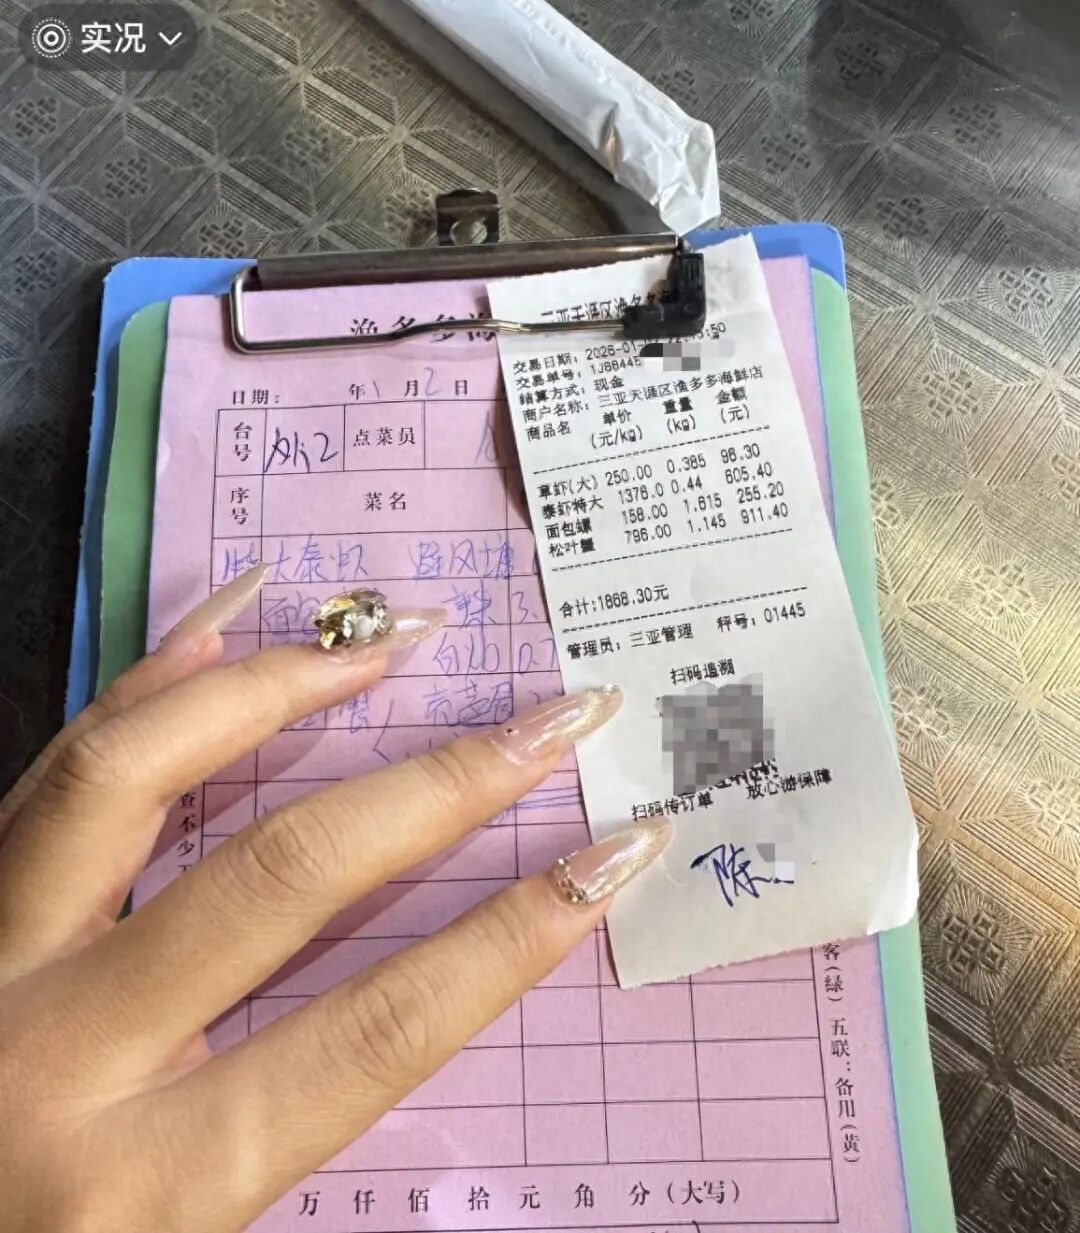 实况
渔多多海
日期： 年1月2日
台号 外2 点菜员
序号 菜名
特大泰虾 避风塘
面包
辣 3.
白灼 0.7
蟹
查不少
三亚天涯区渔多多海
交易日期：2026-01-
交易单号：1J88445
结算方式：现金
商户名称：三亚天涯区渔多多海鲜店
商品名 单价 重量 金额
(元/kg) (kg) (元)
草虾(大) 250.00 0.385 96.30
泰虾特大 1376.0 0.44 605.40
面包螺 158.00 1.615 255.20
松叶蟹 796.00 1.145 911.40
合计:1868.30元
管理员：三亚管理 秤号：01445
扫码追溯
扫码传订单 放心游保障
陈
客(绿) 五联：备用(黄)
万 仟 佰 拾 元 角 分(大写)